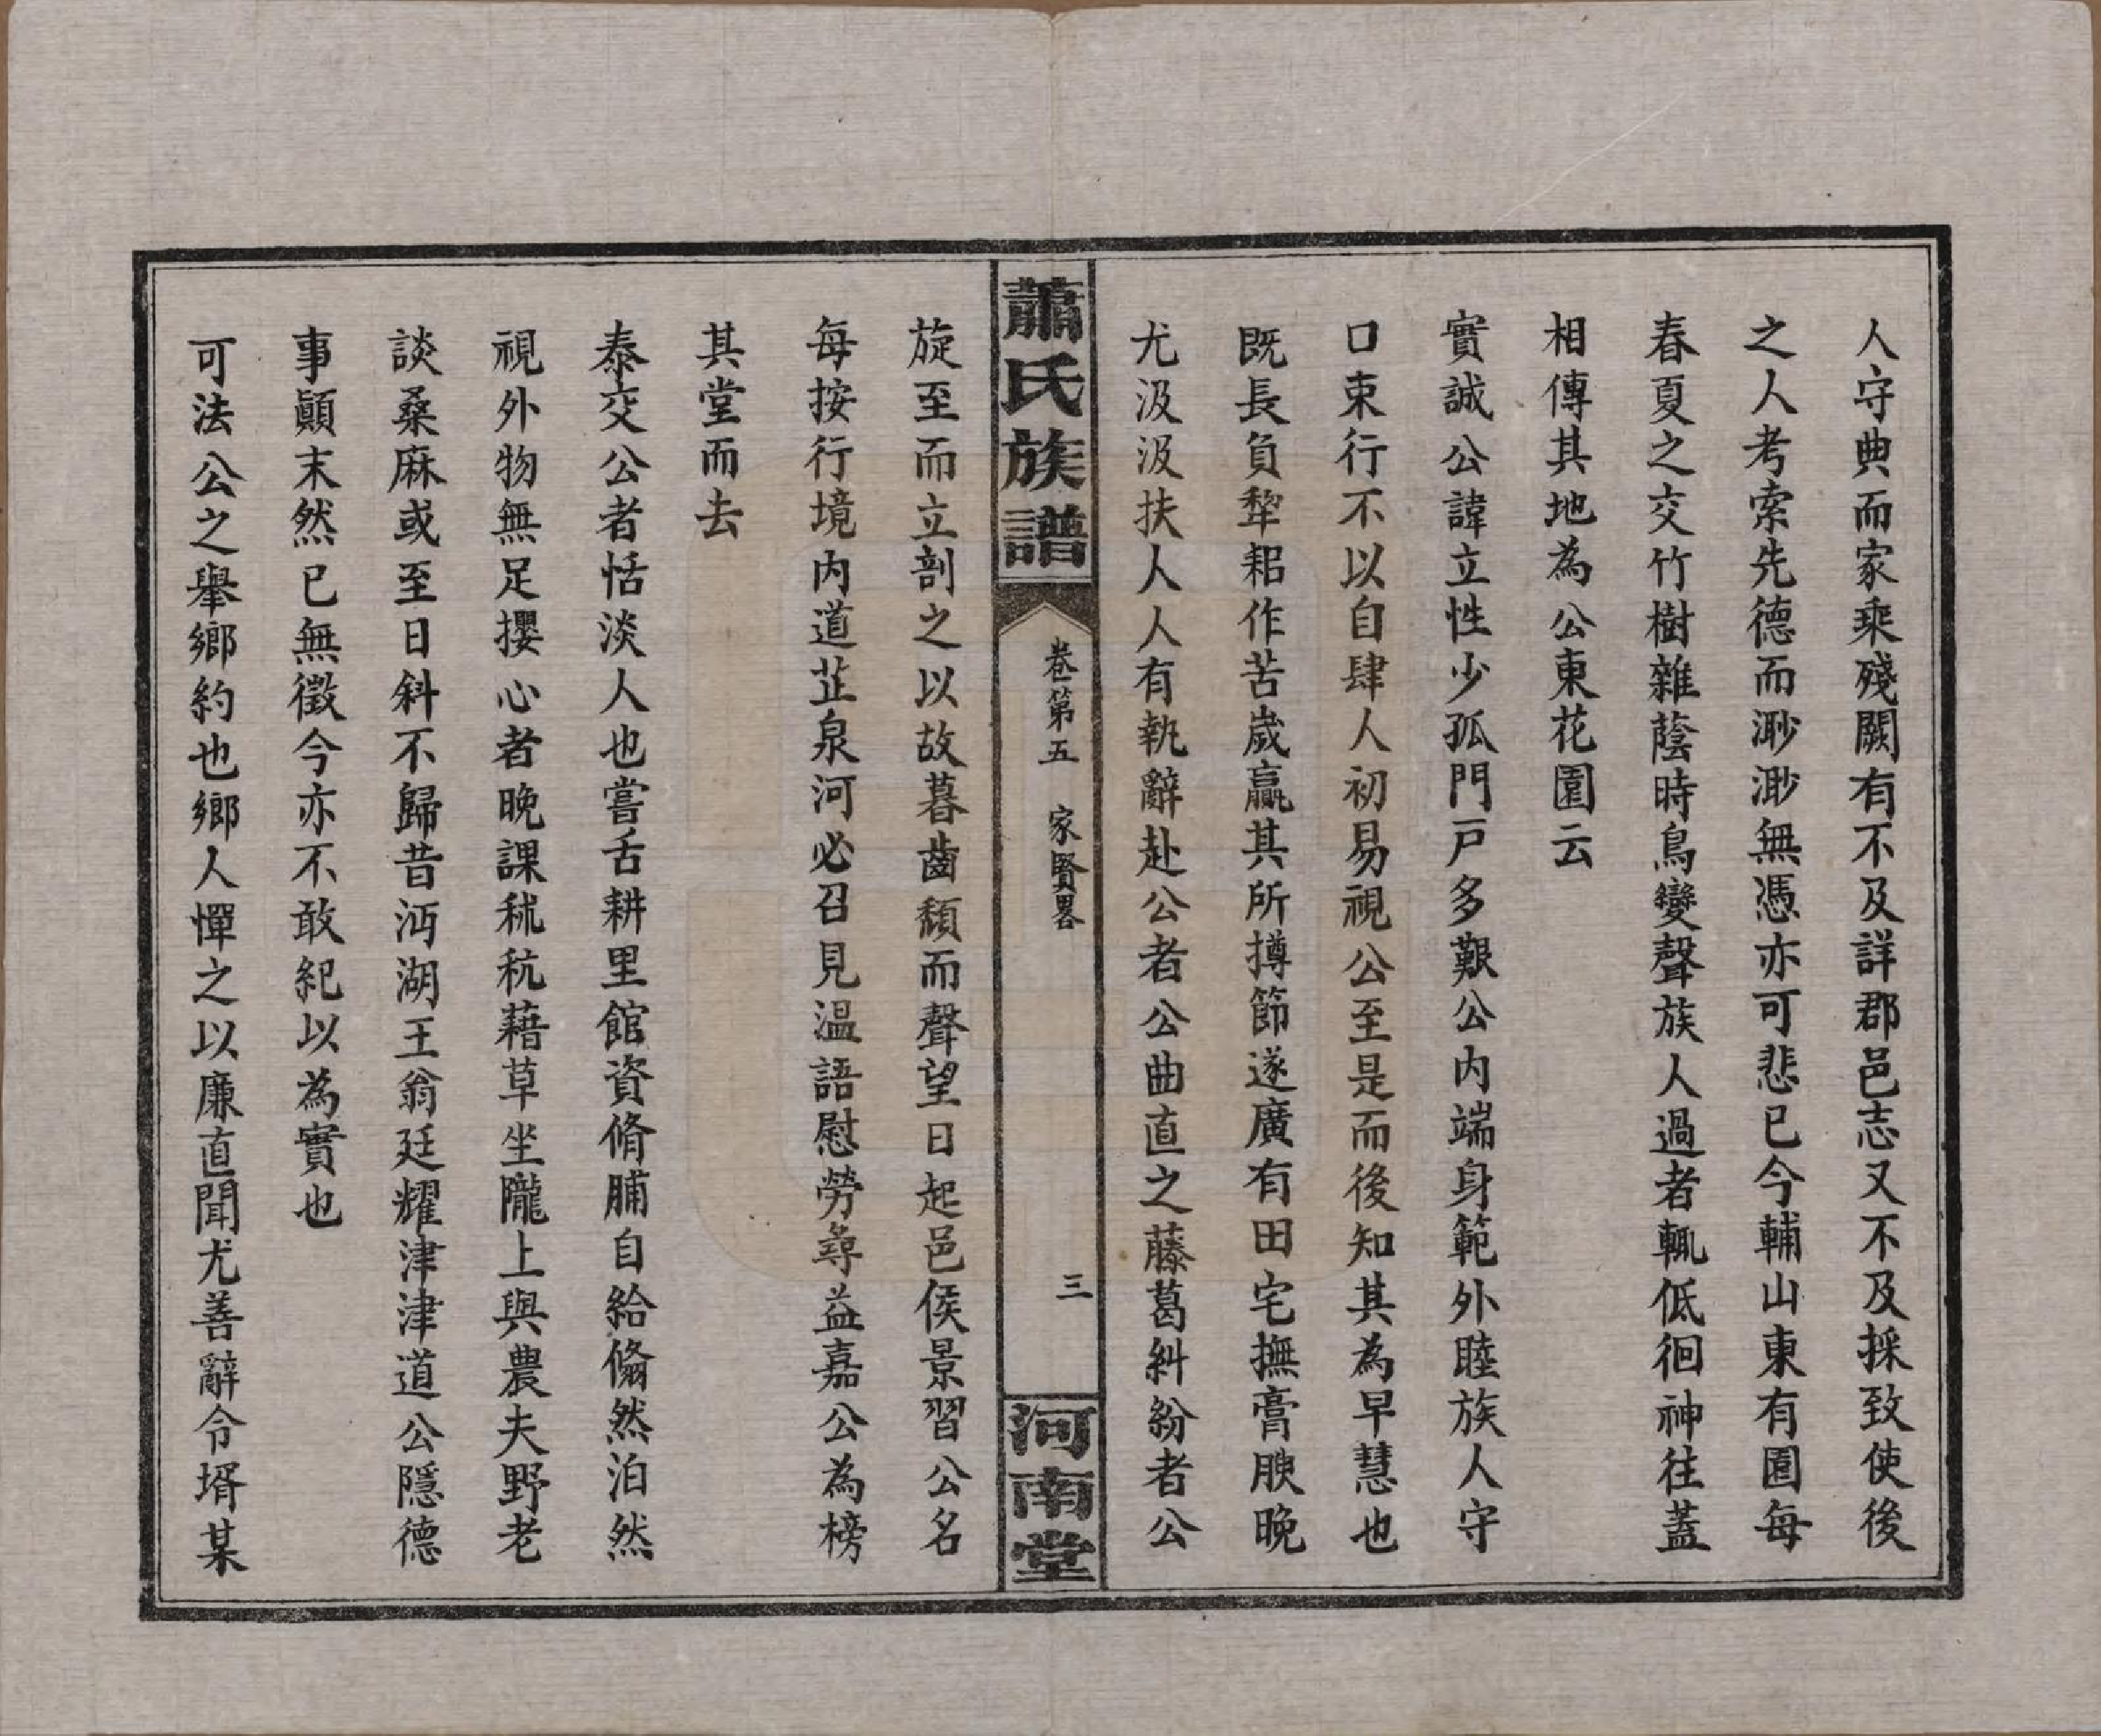 人守典而家乘殘闕有不及詳郡邑志又不及採致使後
之人考索先德而渺渺無憑亦可悲已今輔山東有園每
春夏之交竹樹雜蔭時鳥變聲族人過者輒低徊神往蓋
相傳其地為公東花園云
實誠公諱立性少孤門戶多艱公内端身範外睦族人守
口束行不以自肆人初易視公至是而後知其為早慧也
既長負犂耜作苦歲贏其所撙節遂廣有田宅撫膏腴晚
尤汲汲扶人人有執辭赴公者公曲直之藤葛糾紛者公
蕭氏族譜
卷第五　家賢畧
三
河南堂
旋至而立剖之以故暮齒頹而聲望日起邑侯景習公名
每按行境内道芷泉河必召見温語慰勞尋益嘉公為榜
其堂而去
泰交公者恬淡人也嘗舌耕里館資脩脯自給翛然泊然
視外物無足攖心者晚課秫秔藉草坐隴上與農夫野老
談桑麻或至日斜不歸昔沔湖王翁廷耀津津道公隱德
事顚末然已無徵今亦不敢紀以為實也
可法公之舉鄉約也鄉人憚之以廉直聞尤善辭令壻某